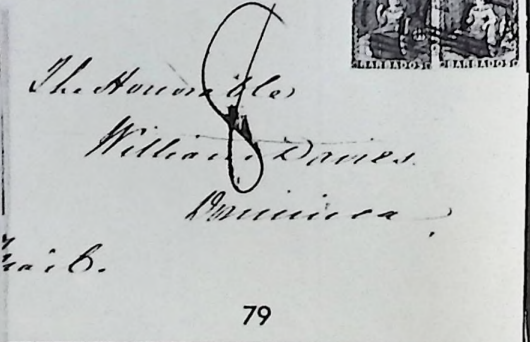 BARBADOS BARBADOS
8
The Honorable
William Davies
Dominica
79